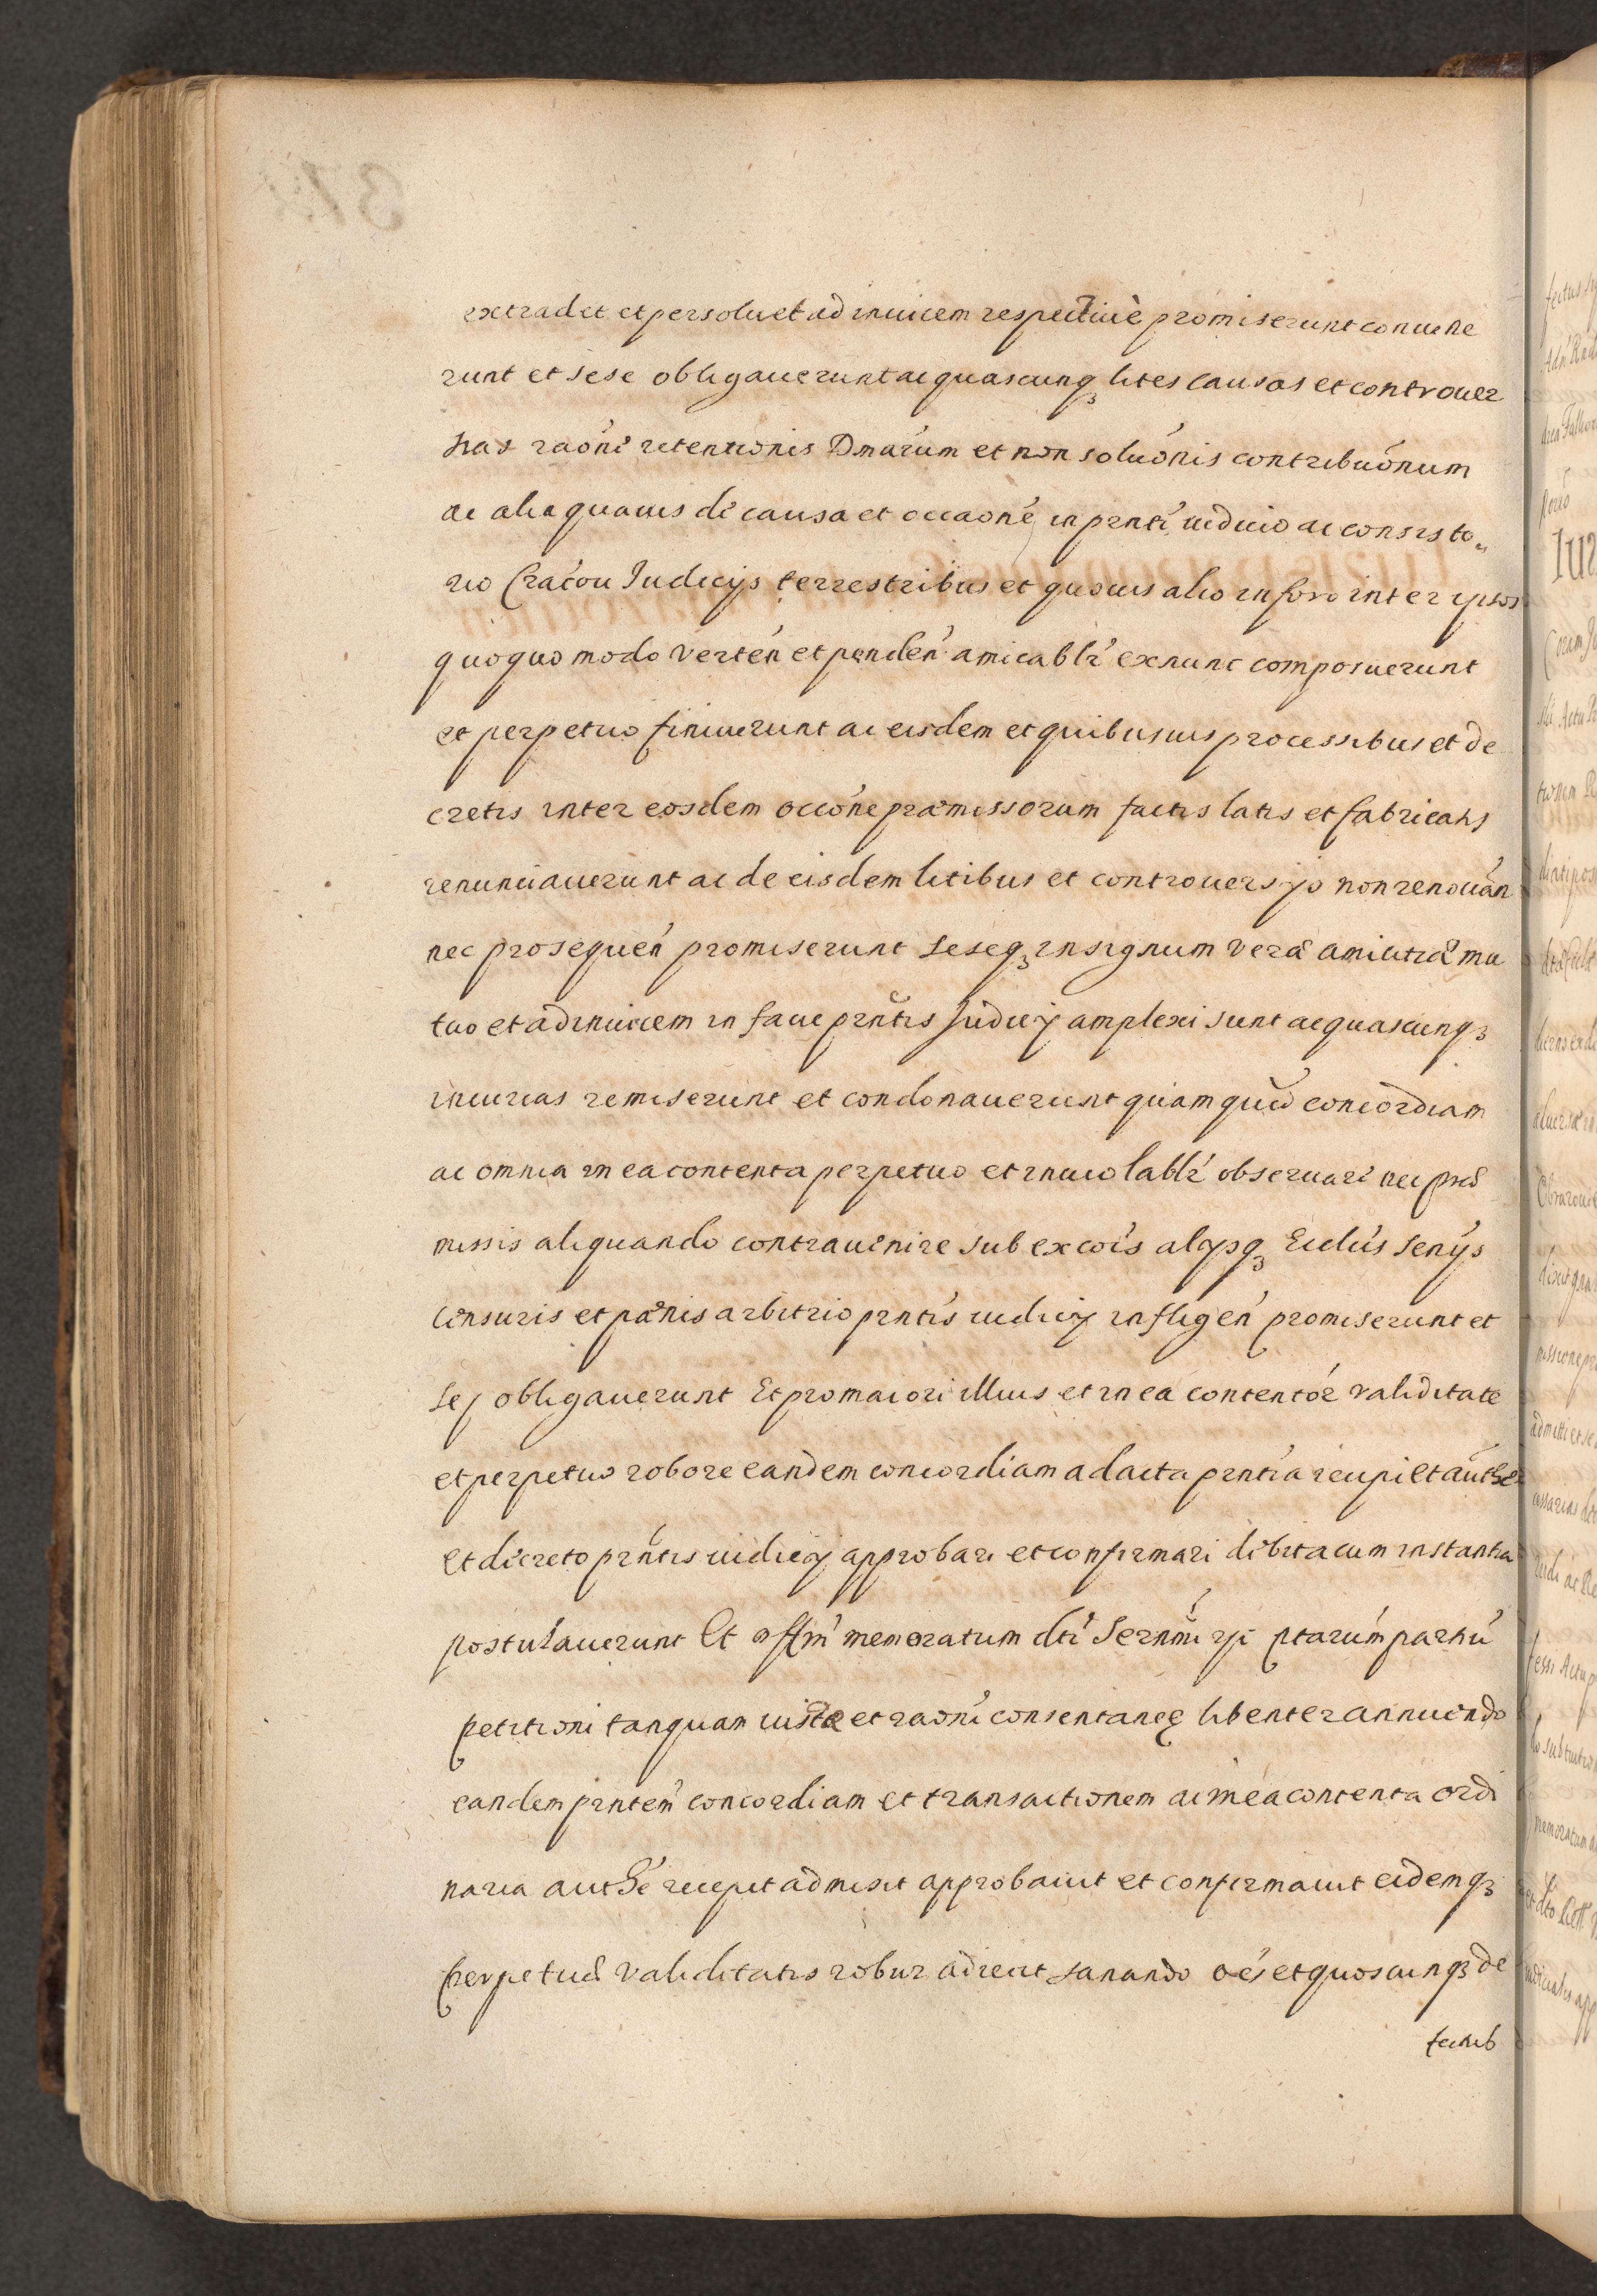 extradet et persoluet ad inuicem respectiuè promiserunt conuene
runt et sese obligauerunt ac quascunq₃ lites causas et controuer
sias raóne retentionis Dmarúm et non soluónis contribuónum
ac alia quauis de causa et occaoné in pnti iudicio ac consisto
rio Cracou Iudicijs terrestribus et quouis alio in foro inter ipsos
quoquo modo vertén et pendén amicablr exnunc composuerunt
et perpetuo finiuerunt ac eisdem et quibusuis processibus et de
cretis inter eosdem occóne præmissorum factis latis et fabricatis
renunciauerunt ac de eisdem litibus et controuersijs non renouán
nec prosequén promiserunt seseq₃ in signum veræ amicitiæ mu
tuo et adinuicem in facie prntis Iudicij amplexi sunt ac quascunq₃
iniurias remiserunt et condonauerunt quam quid concordiam
ac omnia in ea contenta perpetuo et inuiolablr obseruare nec præ
missis aliquando contrauenire sub excois alijsq₃ Eclús senijs
censuris et pænis arbitrio prntis iudicij infligén promiserunt et
sej obligauerunt Et pro maiori illius et in ea contentór validitate
et perpetuo robore eandem concordiam ad acta prntia recipi et authe
et decreto prntis iudicij approbari et confirmari debita cum instantia
postulauerunt Et memoratum dti partiú
petitioni tanquam iustæ et raoni consentaneę libenter annuendo
eandem prntem concordiam et transactionem ac in ea contenta ordi
naria authé recepit admisit approbauit et confirmauit eidemq₃
perpetuæ validitatis robur adiecit sanando oés et quoscunq₃ de
fectub